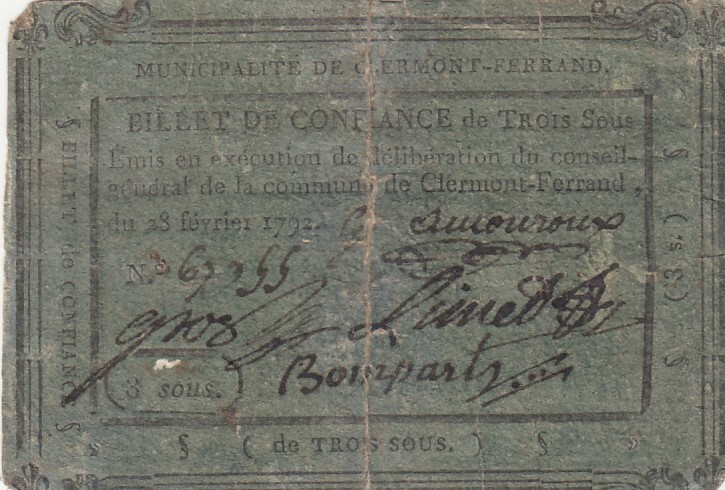 MUNICIPALITÉ DE CLERMONT-FERRAND.
BILLET DE CONFIANCE de TROIS SOUS
Émis en exécution de délibération du conseil-
général de la commune de Clermont-Ferrand,
du 28 février 1792.
amouroux
N.º 67255
gros
Bompart
3 sous.
§ BILLET de CONFIANCE §
§ (3 s.) §
» § ( de TROIS SOUS. ) § »